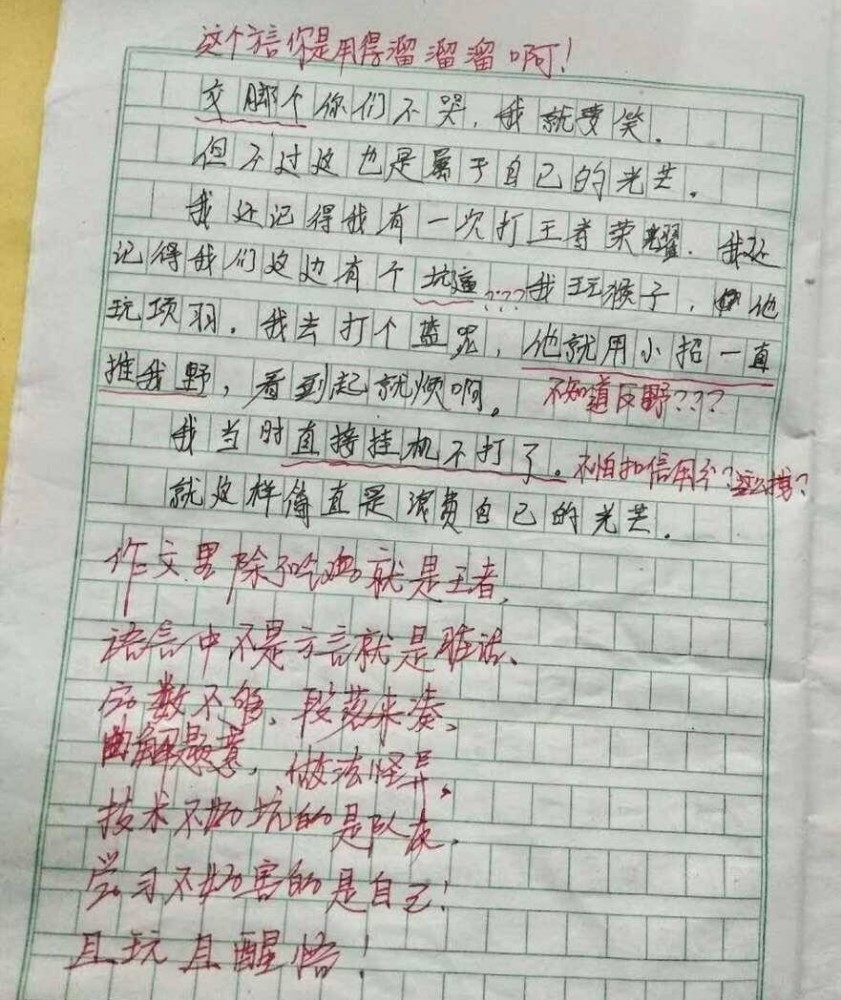 这个方言你是用得溜溜溜啊！
交脚个你们不哭，我就要笑。
但不过这也是属于自己的光芒。
我还记得我有一次打王者荣耀。我还
记得我们这边有个坑逼，???我玩猴子，他
玩项羽。我去打个蓝呢，他就用小招一直
推我野，看到起就烦啊。不知道反野???
我当时直接挂机不打了。不怕扣信用分？
就这样简直是浪费自己的光芒。
作文里除了吃鸡就是王者，
语言中不是方言就是脏话、
字数不够，段落来凑、
曲解题意，做法怪异、
技术不好坑的是队友，
学习不好害的是自己！
且玩且醒悟！